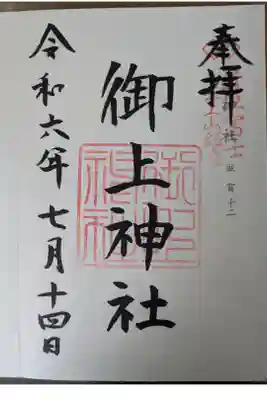 奉拝
御上神社
令和六年七月十四日